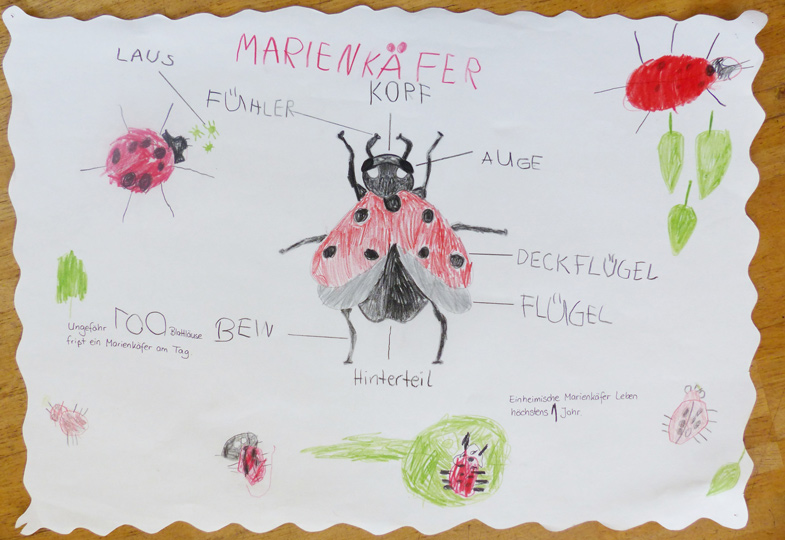 MARIENKÄFER
LAUS
FÜHLER
KOPF
AUGE
DECKFLÜGEL
FLÜGEL
BEIN
Hinterteil
Ungefähr 100 Blattläuse
frißt ein Marienkäfer am Tag
Einheimische Marienkäfer Leben
höchstens 1 Jahr.